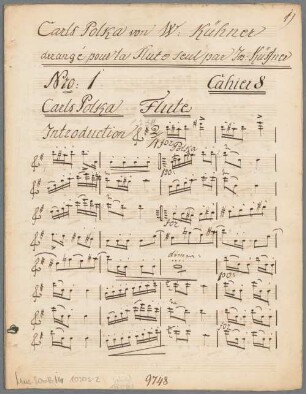 1)
Carls Polka von W. Kühner
arrangé pour la Flute seul par Jos. Küffner
Nro: 1 Cahier 8
Carls Polka Flute
Introduction
Polka
9748